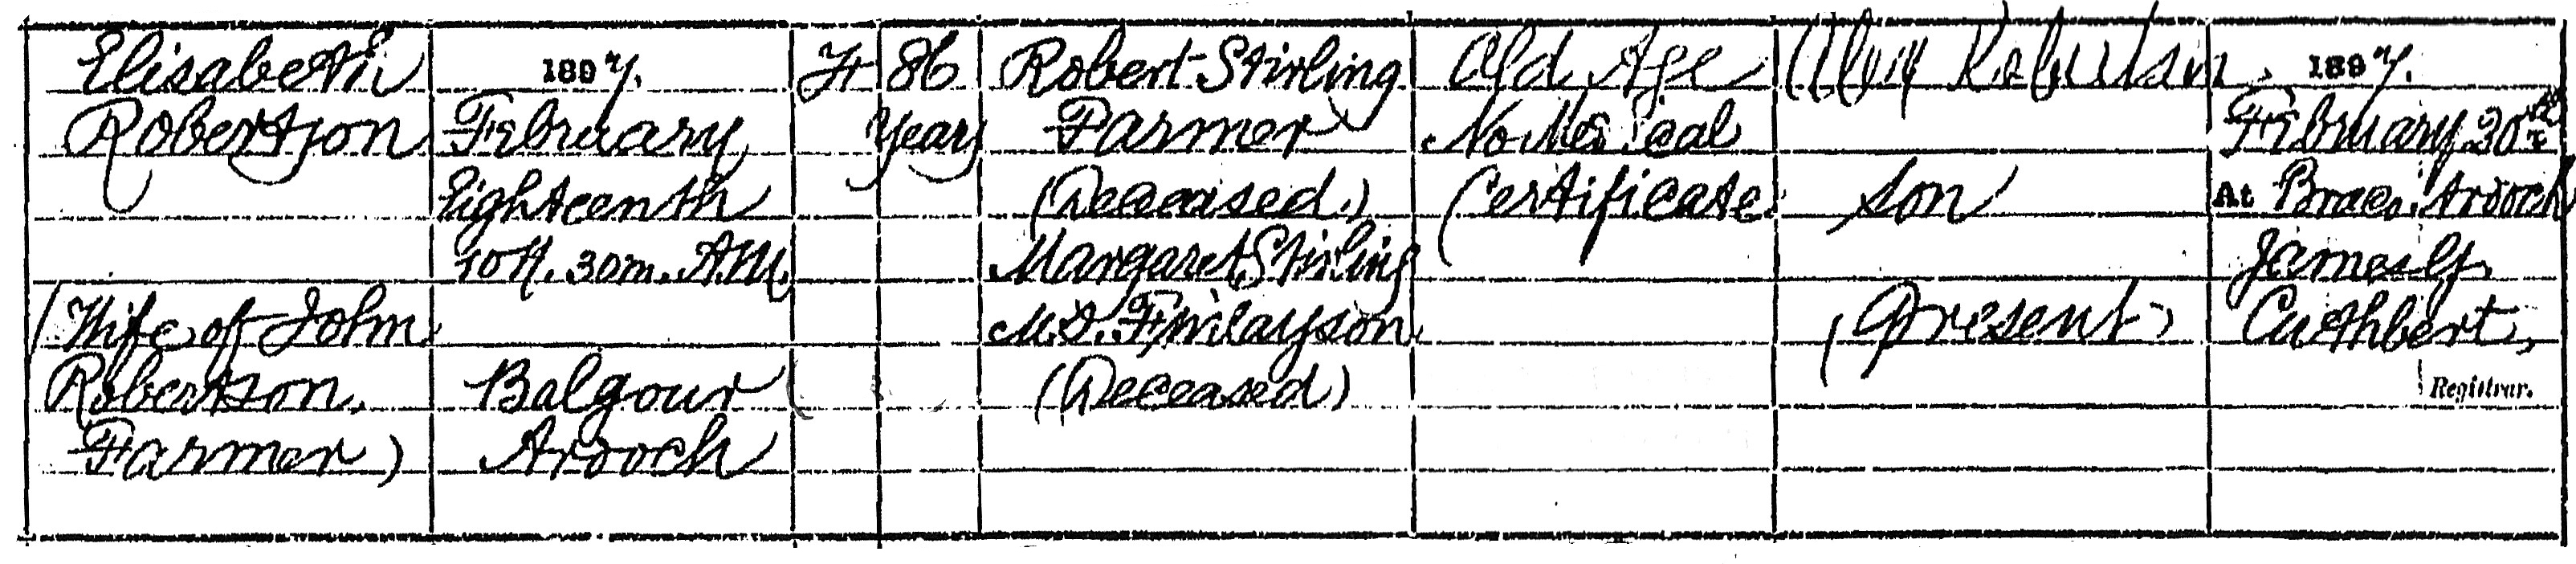 Elisabeth
Robertson
(Wife of John
Robertson,
Farmer)
1897.
February
Eighteenth
10 H. 30m. A.M.
Balgour
Ardoch
F
86
Years
Robert Stirling
Farmer
(Deceased.)
Margaret Stirling
M.S. Finlayson
(Deceased)
Old Age
No Medical
Certificate
Robertson
son
(Present)
1897.
February 20th
At Braco, Ardoch
James
Cuthbert,
Registrar.